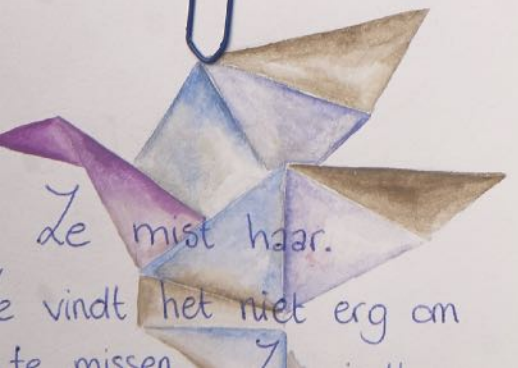 Ze mist haar.
vindt het niet erg om
te missen